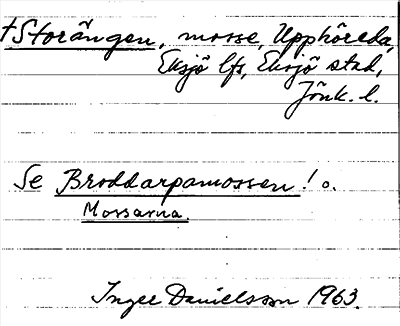 †Storängen, mosse, Upphöreda,
Eksjö lfs, Eksjö stad,
Jönk. l.
Se Broddarpamossen! o.
Mossarna.
Inger Danielsson 1963.